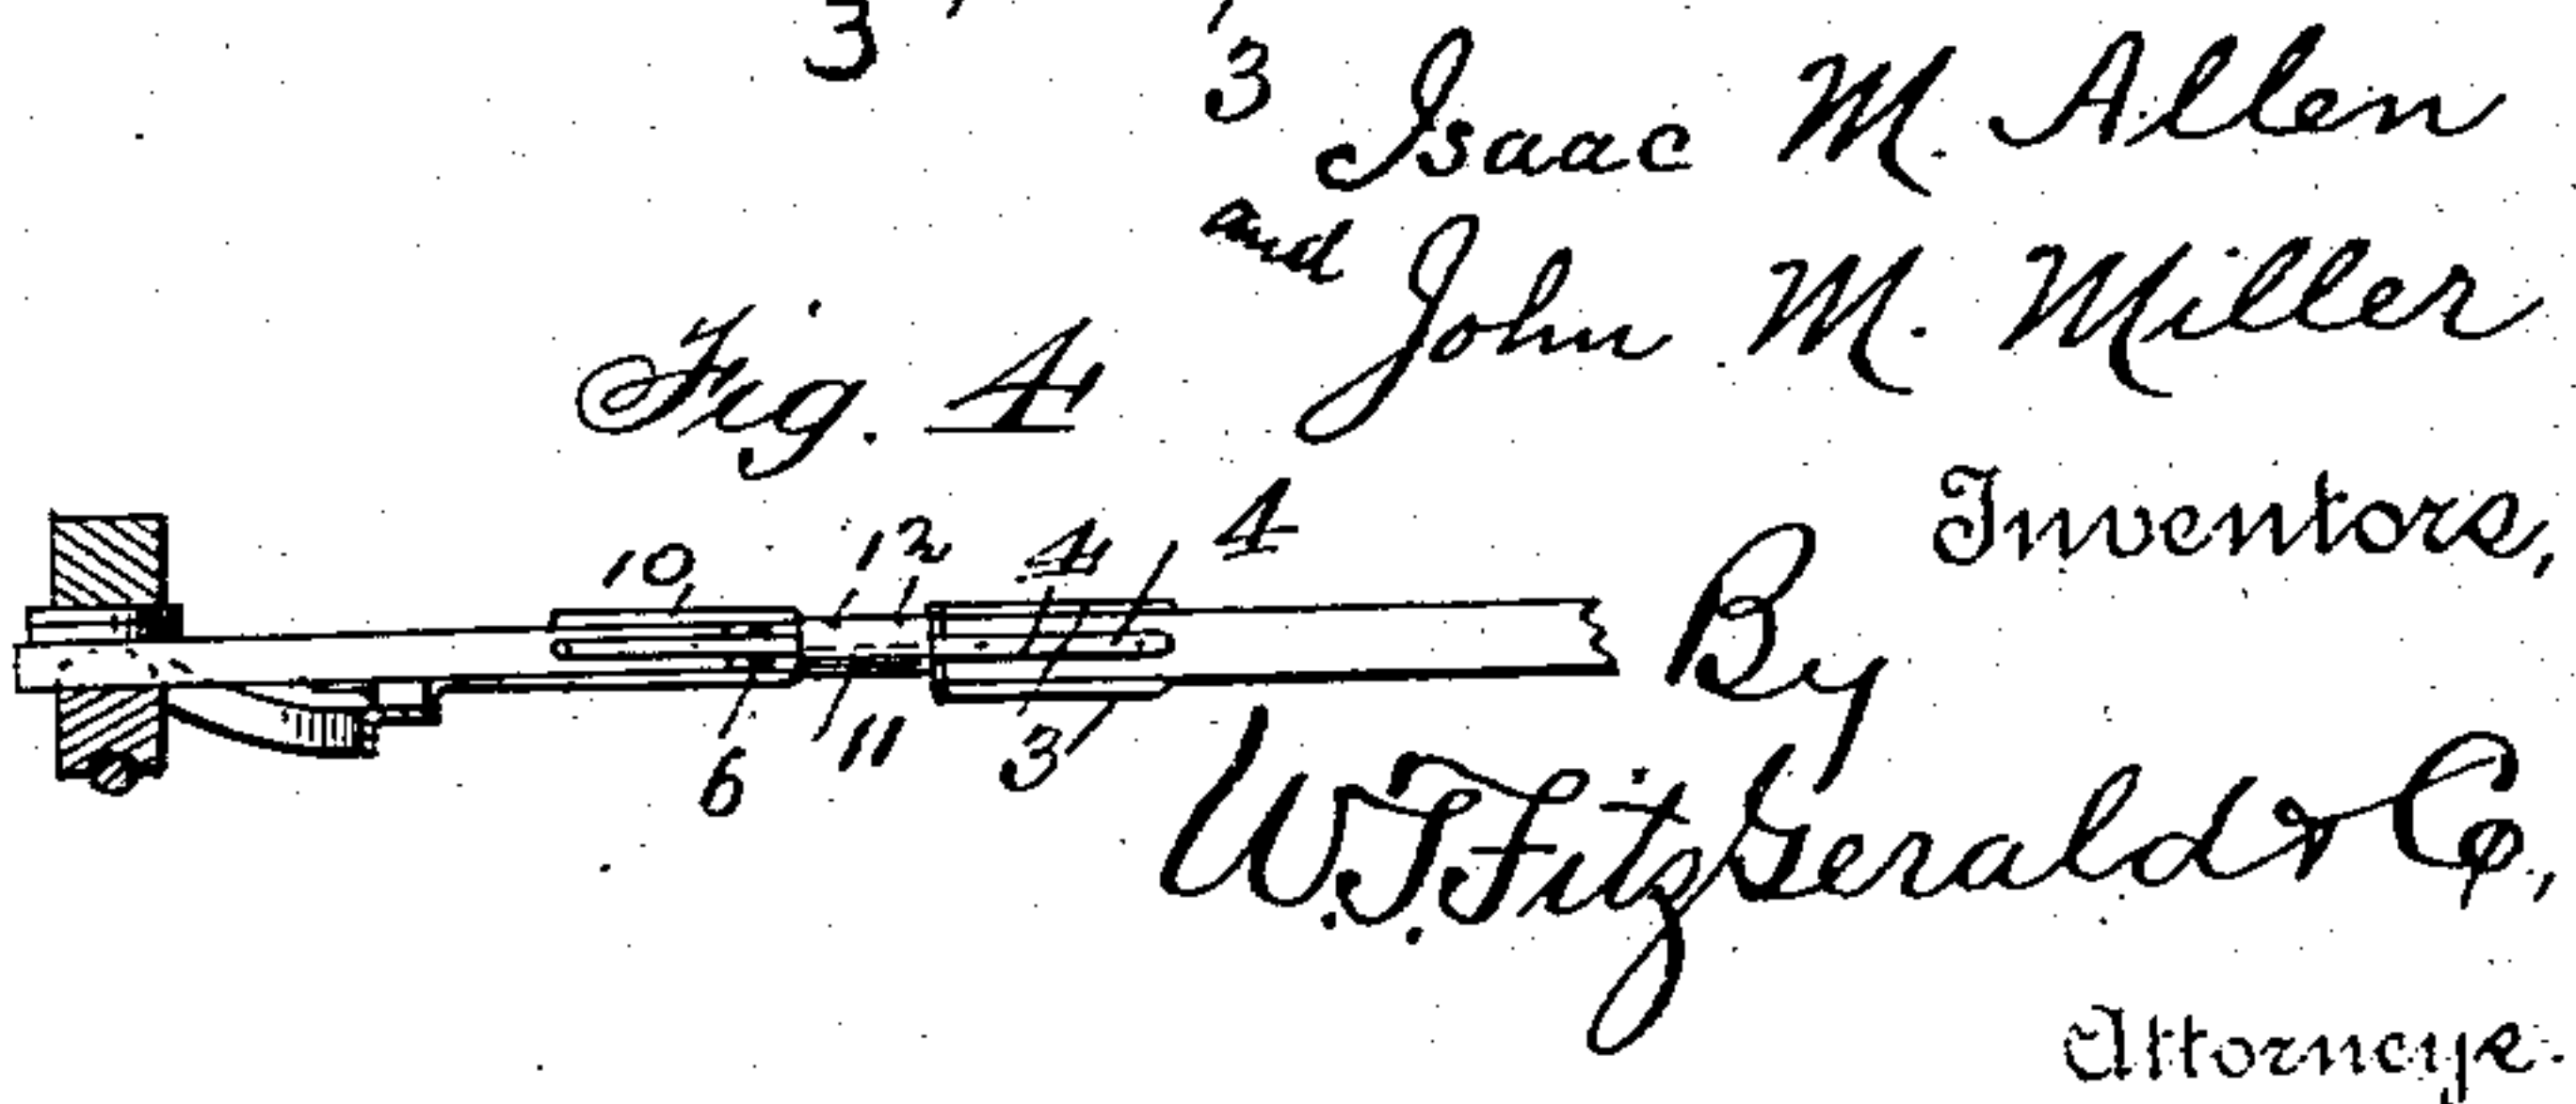 3
3
Isaac M. Allen
and John M. Miller
Fig. 4
Inventors,
10 12 4 4
By
6 11 3
W.T. FitzGerald & Co.,
Attorneys.